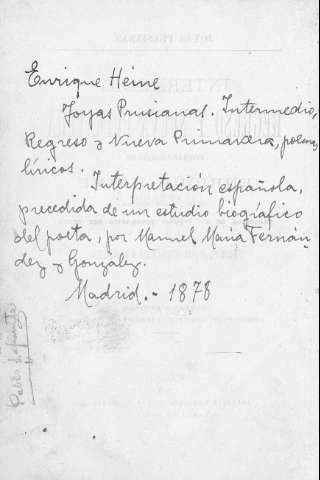 Enrique Heine
Joyas Prusianas. Intermedio,
Regreso y Nueva Primavera, poemas
líricos.
Interpretación española,
precedida de un estudio biográfico
del poeta, por Manuel María Fernán-
dez y González.
Madrid. - 1878